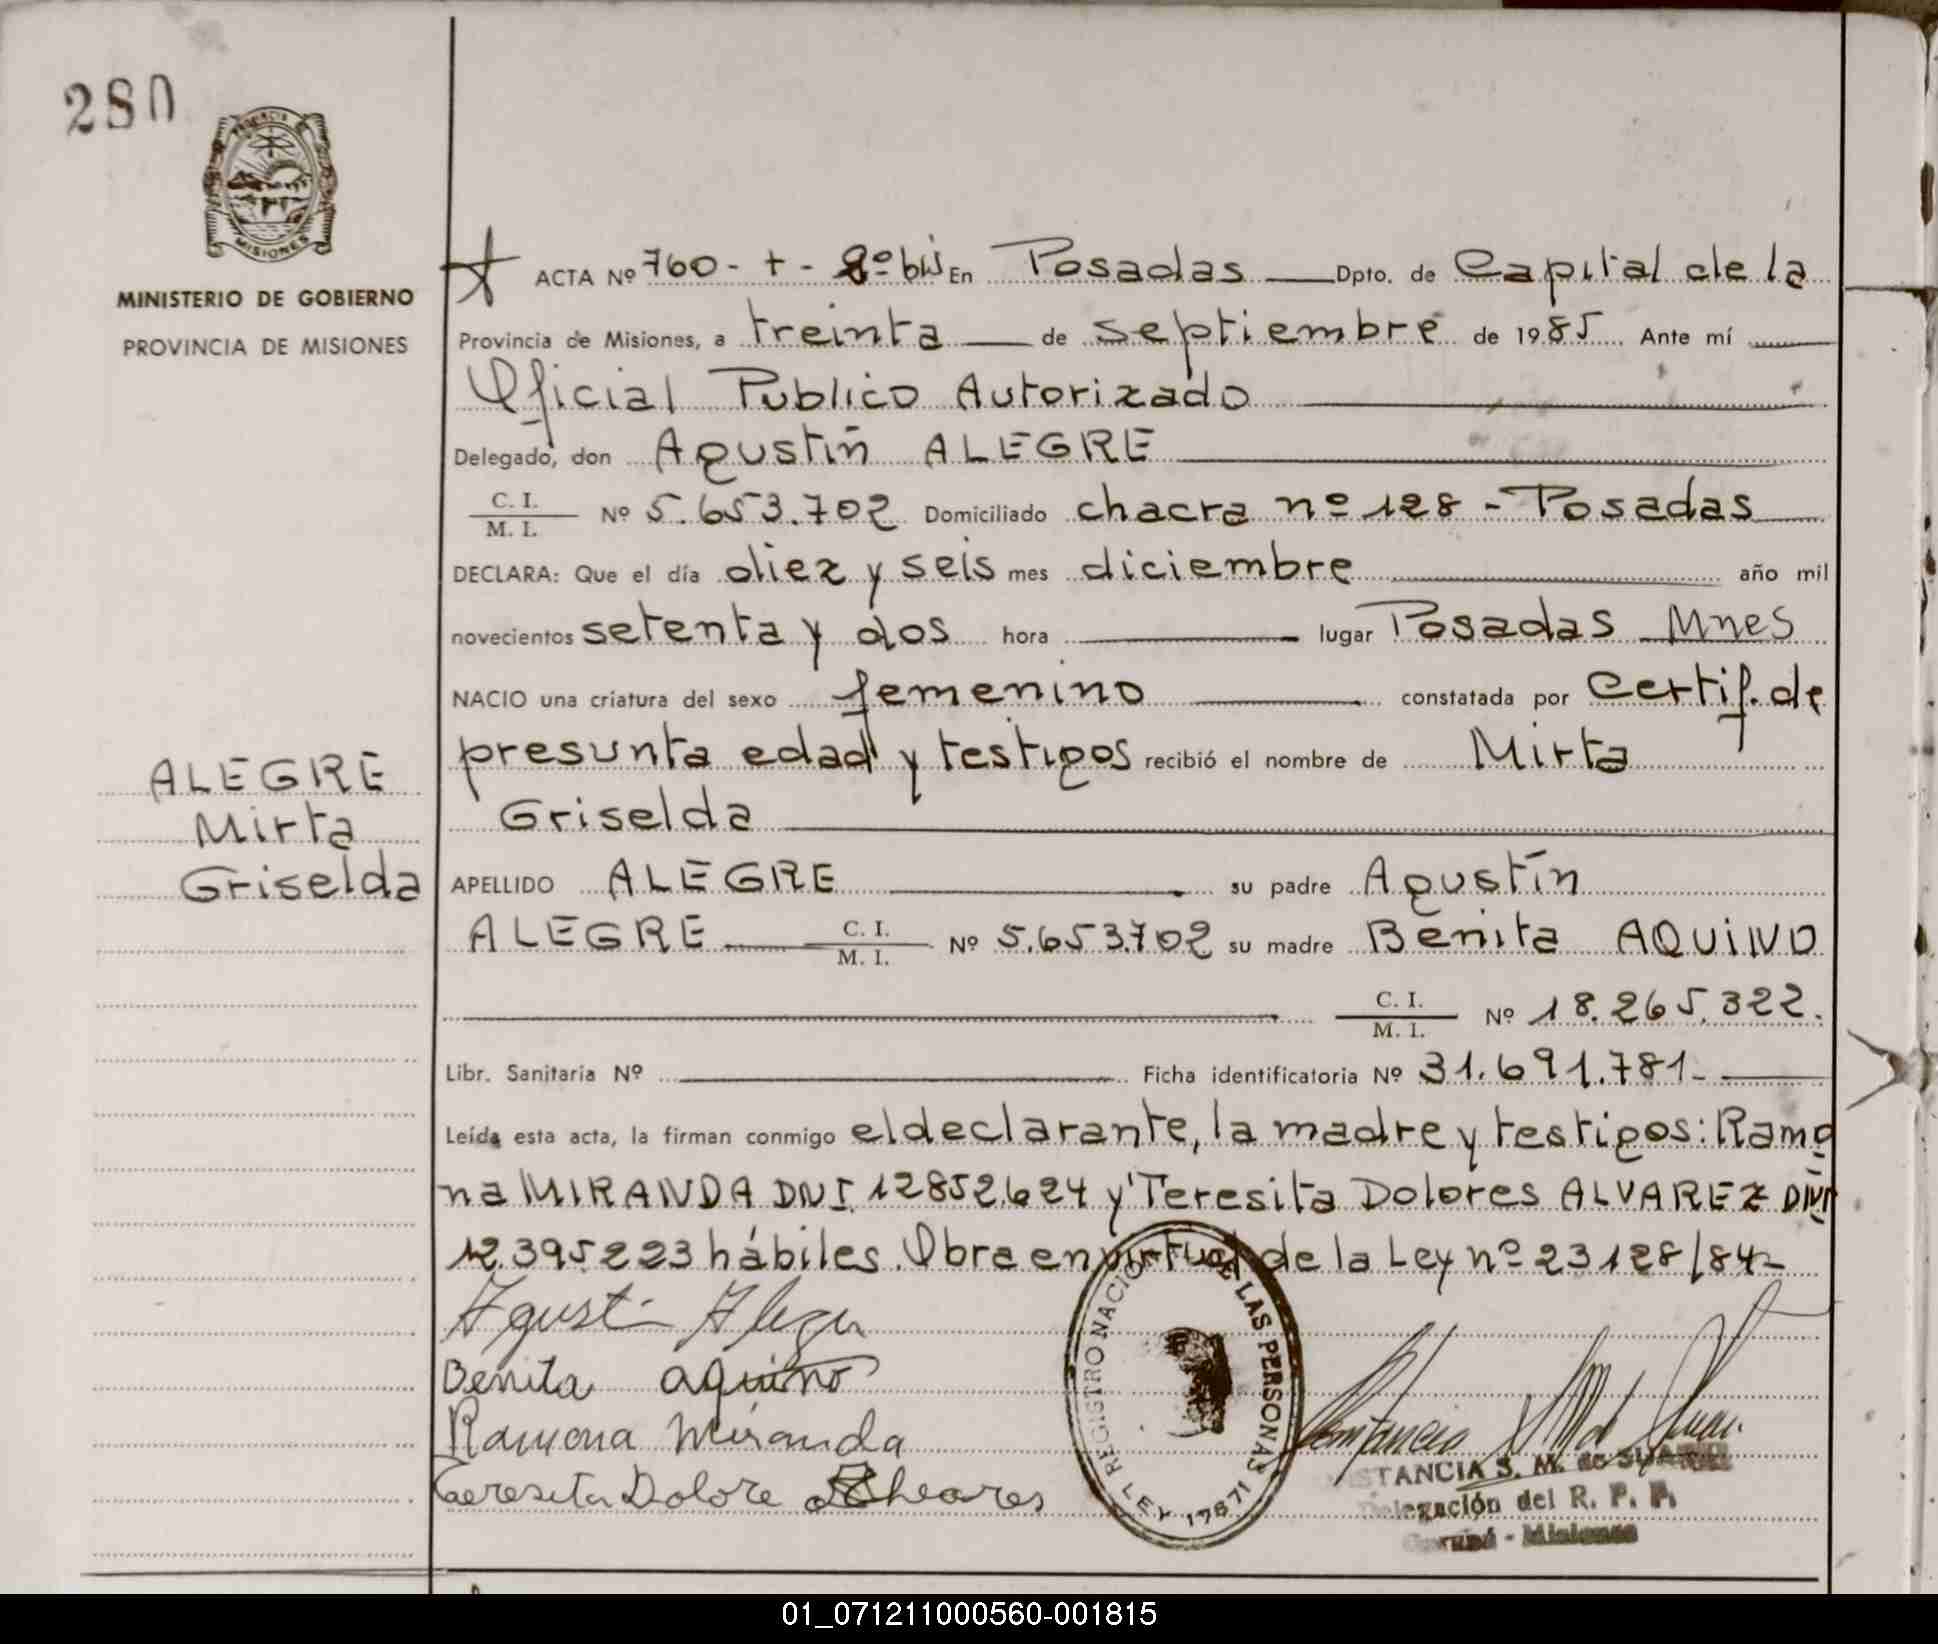 280
PROVINCIA DE
MISIONES
MINISTERIO DE GOBIERNO
PROVINCIA DE MISIONES
ALEGRE
Mirta
Griselda
ACTA Nº 760 - + - 8º bis En Posadas Dpto. de Capital de la
Provincia de Misiones, a treinta de septiembre de 1985 Ante mí
Oficial Publico Autorizado
Delegado, don Agustín ALEGRE
C. I. / M. I. Nº 5.653.702 Domiciliado chacra nº 128 - Posadas
DECLARA: Que el día diez y seis mes diciembre año mil
novecientos setenta y dos hora lugar Posadas Mnes
NACIO una criatura del sexo femenino constatada por Certif. de
presunta edad y testigos recibió el nombre de Mirta
Griselda
APELLIDO ALEGRE su padre Agustín
ALEGRE C. I. / M. I. Nº 5.653.702 su madre Benita AQUINO
C. I. / M. I. Nº 18.265.322.
Libr. Sanitaria Nº Ficha identificatoria Nº 31.691.781-
Leída esta acta, la firman conmigo el declarante, la madre y testigos: Ramo
na MIRANDA DNI. 12852.624 y Teresita Dolores ALVAREZ DNI
12.395.223 hábiles. Obra en virtud de la Ley nº 23128/84-
Agusti Alegre
Benita aquino
Ramona Miranda
Teresita Dolore
REGISTRO NACIONAL DE LAS PERSONAS
LEY 17671
STANCIA S. M. de SUAREZ
Delegación del R. P. P.
Garupá - Misiones
01_071211000560-001815